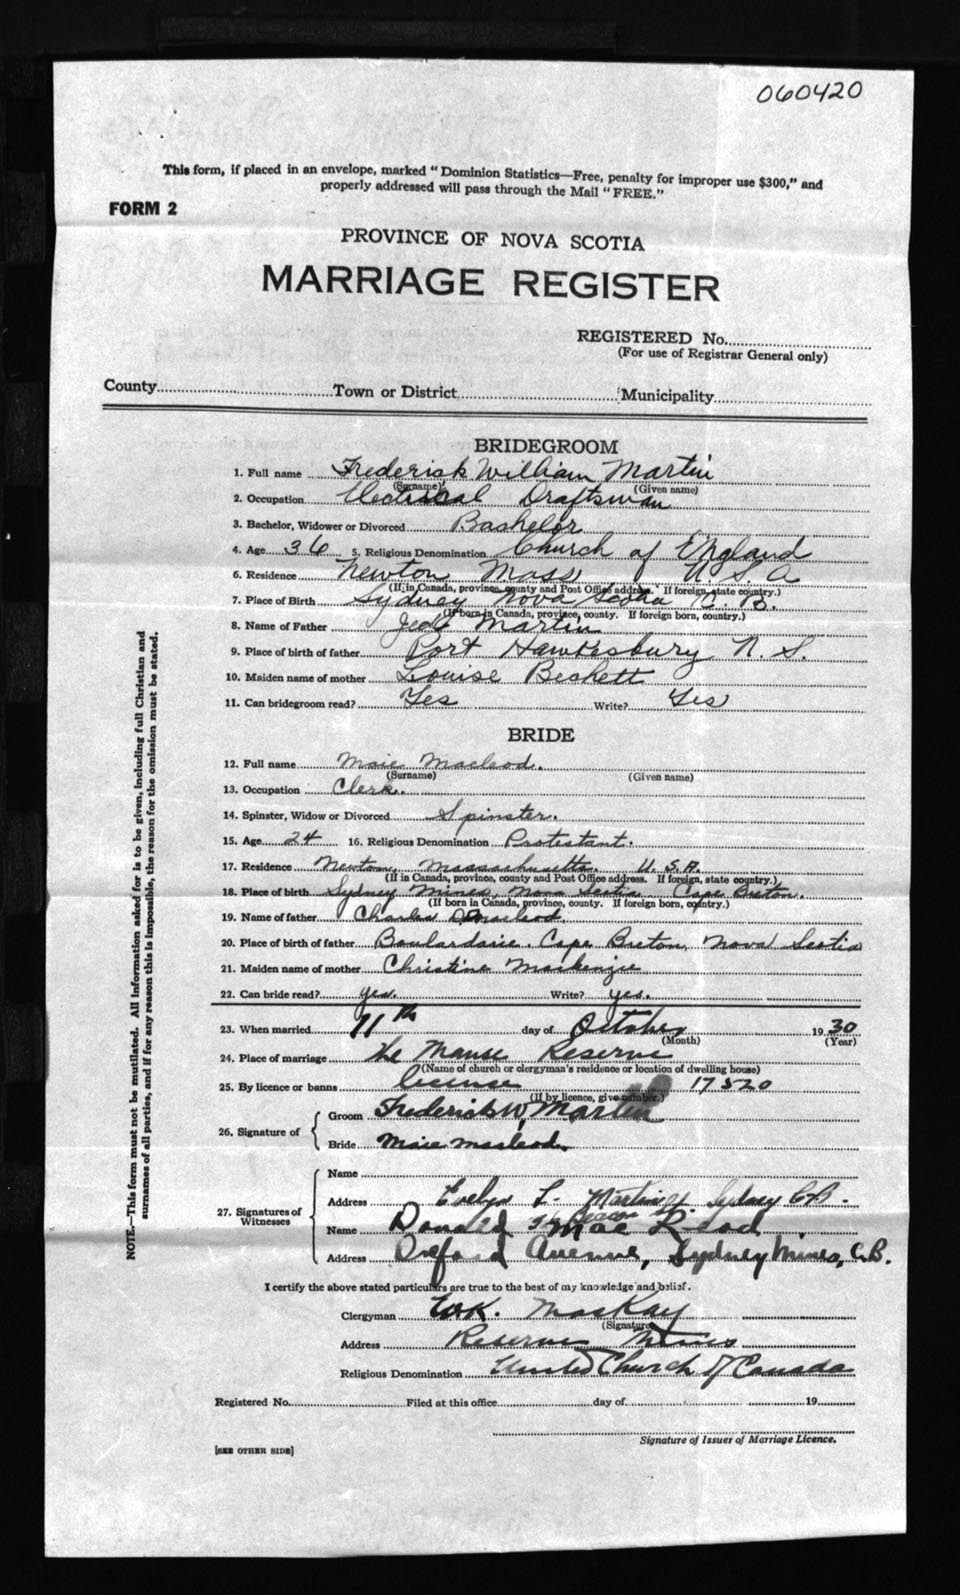 060420
This form, if placed in an envelope, marked "Dominion Statistics—Free, penalty for improper use $300," and
properly addressed will pass through the Mail "FREE."
FORM 2
PROVINCE OF NOVA SCOTIA
MARRIAGE REGISTER
REGISTERED No.
(For use of Registrar General only)
County Town or District Municipality
BRIDEGROOM
1. Full name Frederick William Martin
(Surname) (Given name)
2. Occupation Electrical Draftsman
3. Bachelor, Widower or Divorced Bachelor
4. Age 36 5. Religious Denomination Church of England
6. Residence Newton Mass U. S. A
(If in Canada, province, county and Post Office address. If foreign, state country.)
7. Place of Birth Sydney Nova Scotia C. B.
(If born in Canada, province, county. If foreign born, country.)
8. Name of Father Martin
9. Place of birth of father Port Hawkesbury N. S.
10. Maiden name of mother Louise Beckett
11. Can bridegroom read? Yes Write? Yes
BRIDE
12. Full name Maie Macleod.
(Surname) (Given name)
13. Occupation Clerk.
14. Spinster, Widow or Divorced Spinster.
15. Age 24 16. Religious Denomination Protestant.
17. Residence Newton, Massachusetts. U. S. A.
(If in Canada, province, county and Post Office address. If foreign, state country.)
18. Place of birth Sydney Mines, Nova Scotia Cape Breton.
(If born in Canada, province, county. If foreign born, country.)
19. Name of father Charles D. Macleod.
20. Place of birth of father Boulardarie. Cape Breton, Nova Scotia
21. Maiden name of mother Christine Mackenzie
22. Can bride read? yes. Write? yes.
23. When married 11th day of October 1930
(Month) (Year)
24. Place of marriage The Manse Reserve
(Name of church or clergyman's residence or location of dwelling house)
25. By licence or banns license 17520
(If by licence, give number.)
26. Signature of Groom Frederick W. Martin
Bride Maie Macleod.
27. Signatures of Witnesses
Name
Address Evelyn L. Martin Sydney C.B.
Name Donald Mac Leod
Address Oxford Avenue, Sydney Mines, C.B.
I certify the above stated particulars are true to the best of my knowledge and belief.
Clergyman W.K. MacKay
(Signature)
Address Reserve Mines
Religious Denomination United Church of Canada
Registered No. Filed at this office day of 19
Signature of Issuer of Marriage Licence.
[SEE OTHER SIDE]
NOTE.—This form must not be mutilated. All information asked for is to be given, including full Christian and
surnames of all parties, and if for any reason this is impossible, the reason for the omission must be stated.